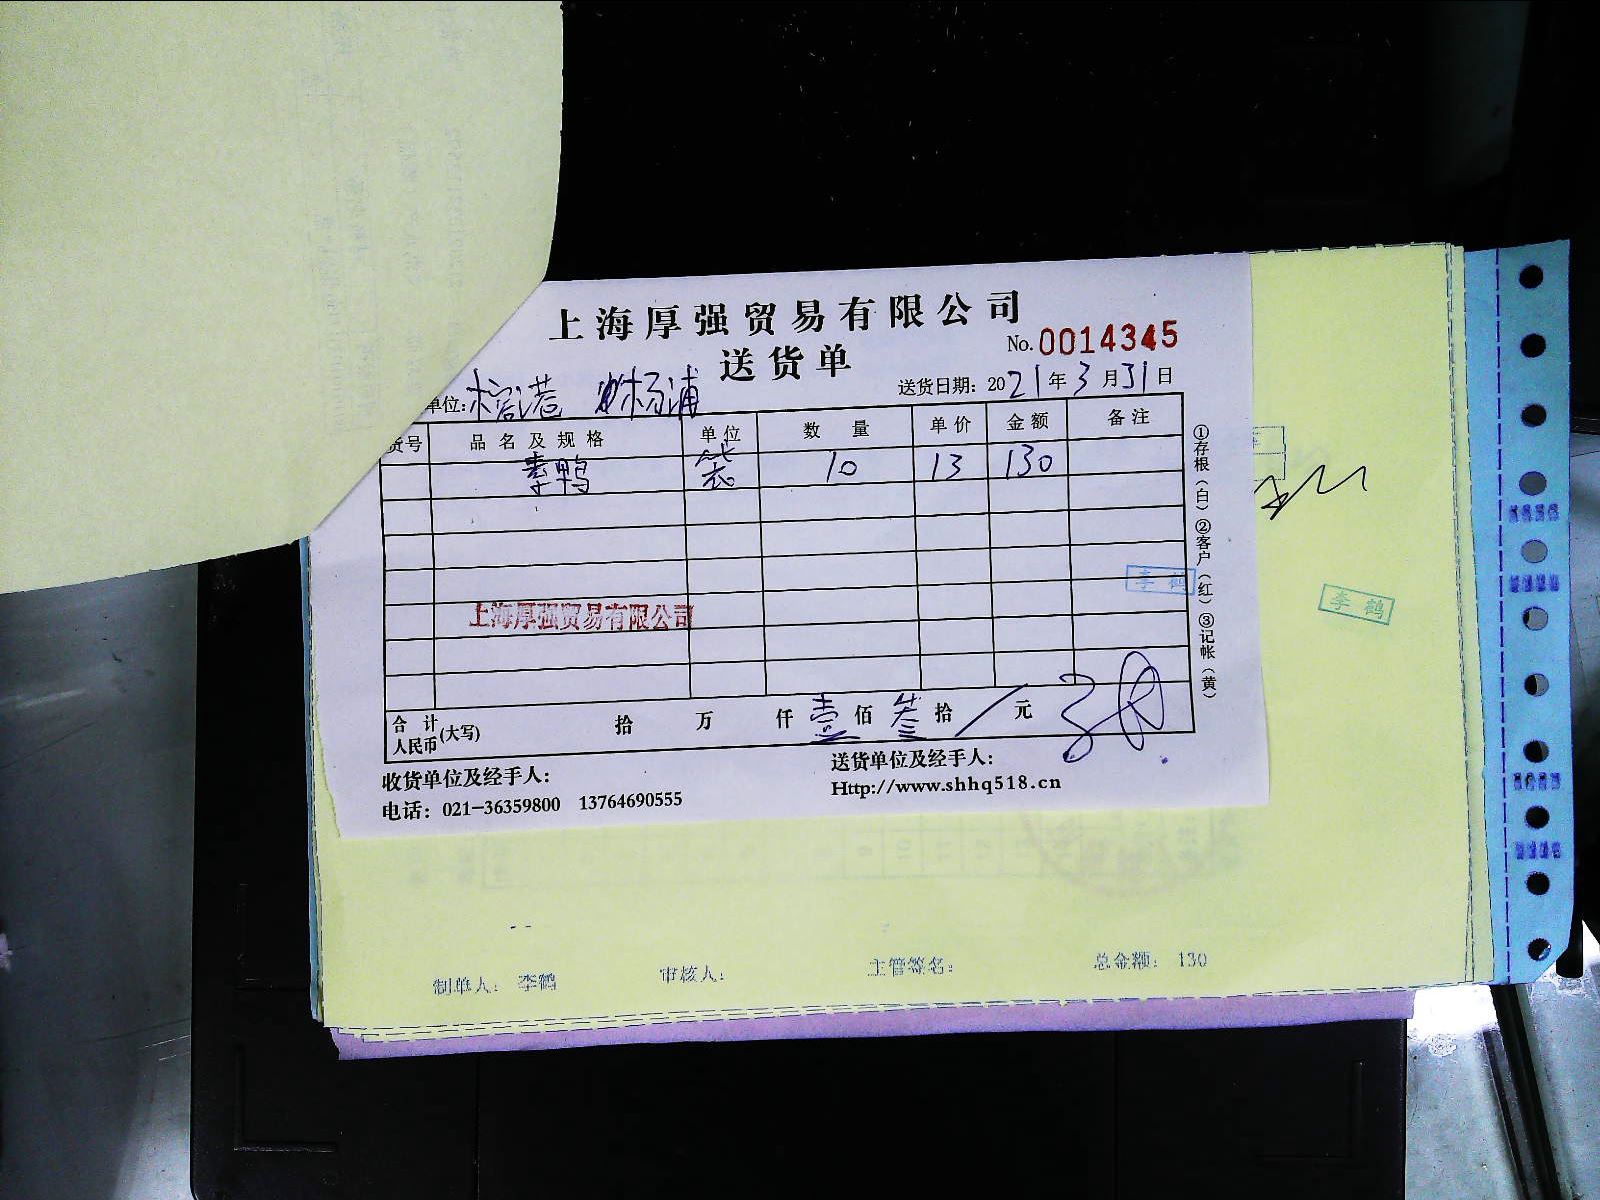 上海厚强贸易有限公司
送货单
No. 0014345
单位:
送货日期: 2021年3月31日
货号 品名及规格 单位 数量 单价 金额 备注
素鸭 袋 10 13 130
①存根(白)②客户(红)③记帐(黄)
李鹤
李鹤
上海厚强贸易有限公司
合计人民币(大写) 拾 万 仟 壹 佰 叁 拾 / 元
收货单位及经手人:
送货单位及经手人:
电话: 021-36359800 13764690555
Http://www.shhq518.cn
制单人: 李鹤 审核人: 主管签名: 总金额: 130